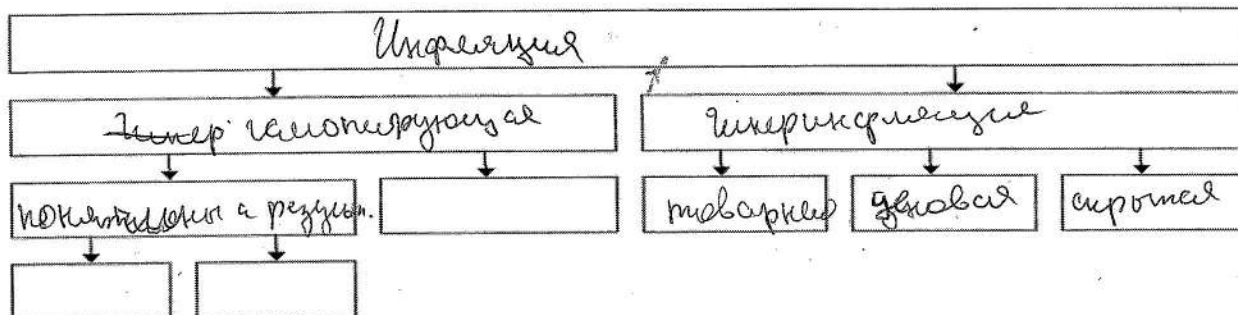 Инфляция
Гипер галопирующая
Гиперинфляция
товарная
ценовая
скрытая